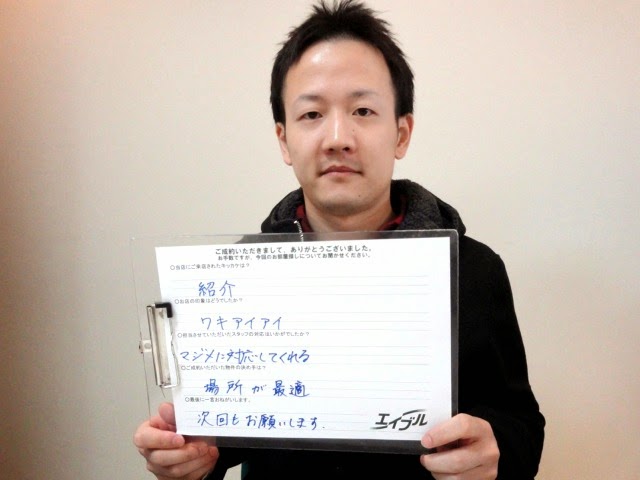 ご成約いただきまして、ありがとうございました。
お手数ですが、今回のお部屋探しについてお聞かせください。
○当店にご来店されたキッカケは？
紹介
○お店の印象はどうでしたか？
ワキアイアイ
○担当させていただいたスタッフの対応はいかがでしたか？
マジメに対応してくれる
○ご成約いただいた物件の決め手は？
場所が最適
○最後に一言おねがいします。
次回もお願いします.
エイブル